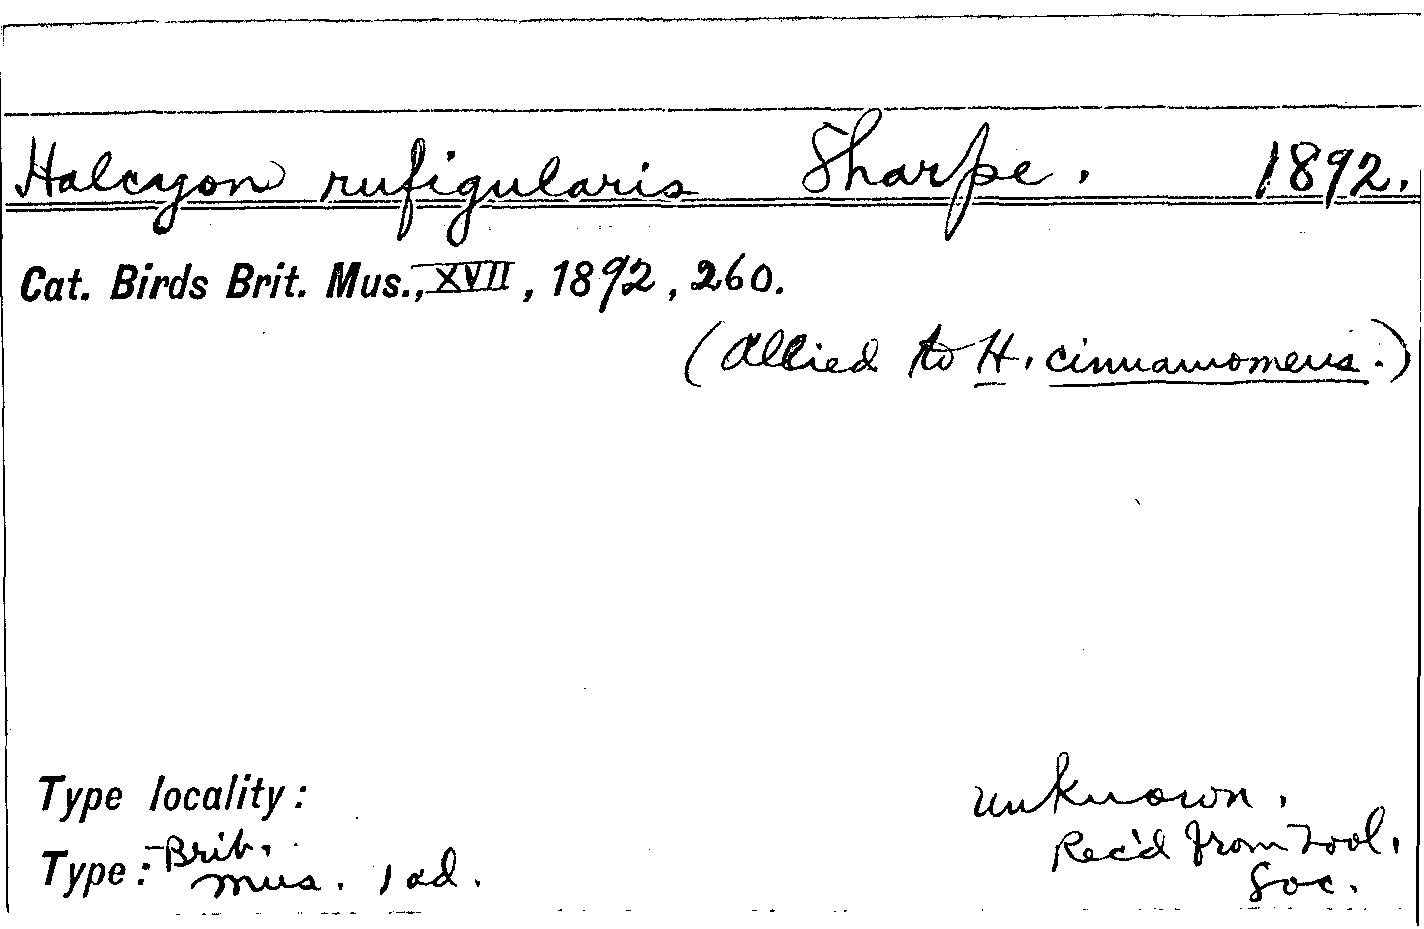 Halcyon rufigularis Sharpe. 1892.
Cat. Birds Brit. Mus., XVII, 1892, 260.
(Allied to H. cinnamomeus.)
Type locality: unknown.
Rec'd from Zool. Soc.
Type: Brit. Mus. 1 ad.